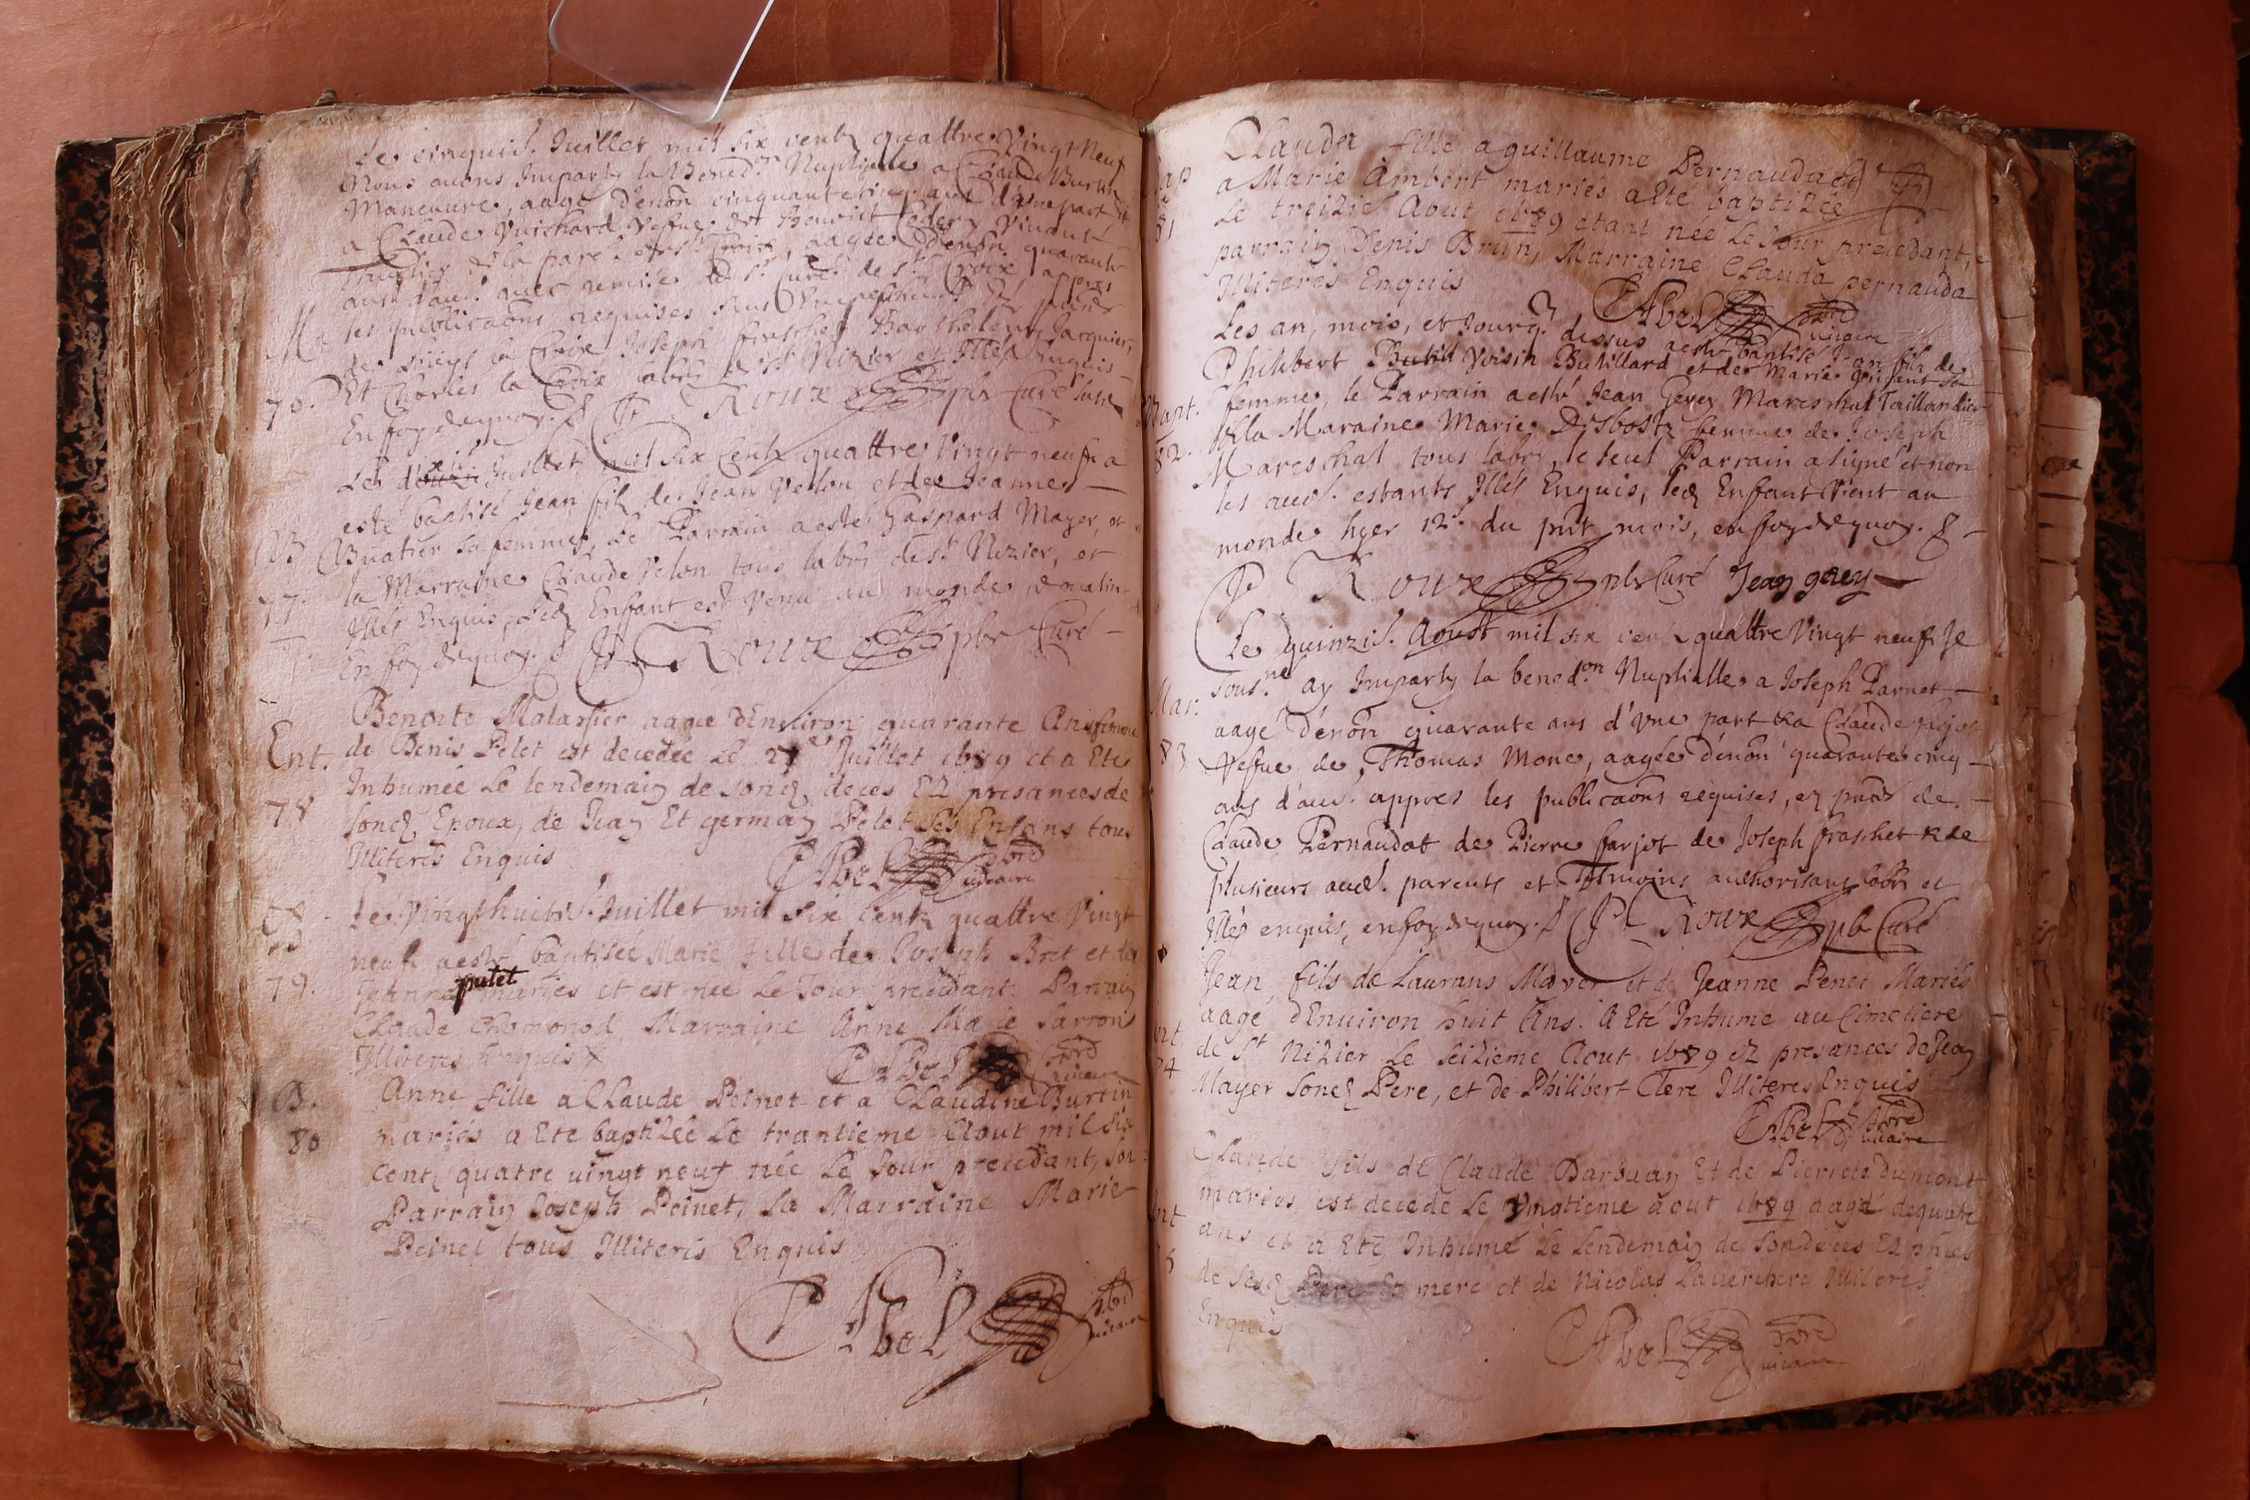 Le cinquie. Juillet mil six centz quattre Vingt Neuf
Nous avons Imparty la Bened.on Nuptialle a Claude Burtin
Maneuvre, aagé d'enon cinquante cinq ans d'une part et
a Claude Vuichard Vefve de Benoict
de la par. de Ste Croix, aagée d'enon quarante
ans d'au. avec remise du Sr Curé de Ste Croix apres
Ma
les publicaons requises
de Joseph fraschet Barthelemy Jarquier,
70. Et Charles la Croix labrs de St Nizier et Illes Enquis
En foy de quoy. J. Roux pbr Curé
Le Juillet mil six Centz quattre Vingt neuf a
esté baptisé Jean filz de Jean Velon et de Jeanne
B Buatier sa femme, Le Parrain a esté Gaspard Mayer, et
77. la Marraine Claude Velon tous labrs de St Nizier, et
Illes Enquis, Led Enfant est Venu au monde
En foy de quoy. J. Roux pbr Curé
Benoite Malassier aagée dEnviron quarante Ans femme
Ent. de Denis Pelet est decedée Le 27 Juillet 1689 et a Eté
Inhumée Le lendemain de sond deces En presances de
78 sond Epoux, de Jean Et german Pelet ses Enfans tous
Illiterés Enquis P Abel vicaire
Le Vingthuictie. Juillet mil six Centz quattre Vingt
neuf a esté baptisée Marie fille de Joseph Bret et de
79. Jeanne putet mariés et est née Le Jour precedant. Parrain
Claude Chomonod Marraine Anne Marie Sarron
Illiteres Enquis P Abel vicaire
B. Anne fille a Claude Peinet et a Claudine Burtin
80 mariés a Eté baptizée Le trantieme Aout mil six
centz quatre vingt neuf née Le Jour precedant, son
Parrain Joseph Peinet, La Marraine Marie
Peinet tous Illiterés Enquis
P Abel vicaire
Clauda fille a guillaume Pernaudat et
Bap a Marie Ambert mariés a Eté baptizée
81 Le treizie Aout 1689 etant née Le Jour precedant,
parrain Denis Brun, Marraine Clauda pernauda
Illiteres Enquis P Abel vicaire
Les an, mois, et Jour q. dessus a esté baptisé Jean filz de
Philibert Voisin Butillard et de Marie
Bapt. femme, le Parrain a esté Jean Gerey Mareschal Taillandier
82. Et la Maraine Marie Desbostz femme de Joseph
Mareschal tous labrs, le seul Parrain a signé et non
les aud. estants Illés Enquis, led Enfant Vient au
monde hyer 12e. du pnt mois, en foy de quoy.
J. Roux pbr Curé Jean gerey
Le quinzie. Aoust mil six centz quattre Vingt neuf Je
sous.né ay Imparty la bened.on Nuptialle a Joseph Parnet
Mar. aagé d'enon quarante ans d'Vne part & a Claude farjot
83 Vefve de Thomas Mone, aagée d'enon quarante cinq
ans d'au. appres les publicaons requises, en pnce de
Claude Pernaudat de Pierre farjot de Joseph fraschet & de
plusieurs aud. parents et Tesmoins authorisant labrs et
Illés enquis, en foy de quoy. J. Roux pbr Curé
Jean fils de Laurans Mayer et de Jeanne Penet Mariés
Ent aagé dEnviron huit Ans. A Eté Inhumé au Cimetiere
84 de St Nizier Le seizieme Aout 1689 En presances de Jean
Mayer sond Pere, et de Philibert Clere Illiteres Enquis
P Abel vicaire
Claude fils de Claude Darbuan Et de Pierrete dumont
Ent mariés est decedé Le Vingtieme aout 1689 aagé de quatre
ans et a Eté Inhumé Le Lendemain de son deces En pnces
85 de sesd Pere Et mere et de Nicolas Illiteres
Enquis P Abel vicaire